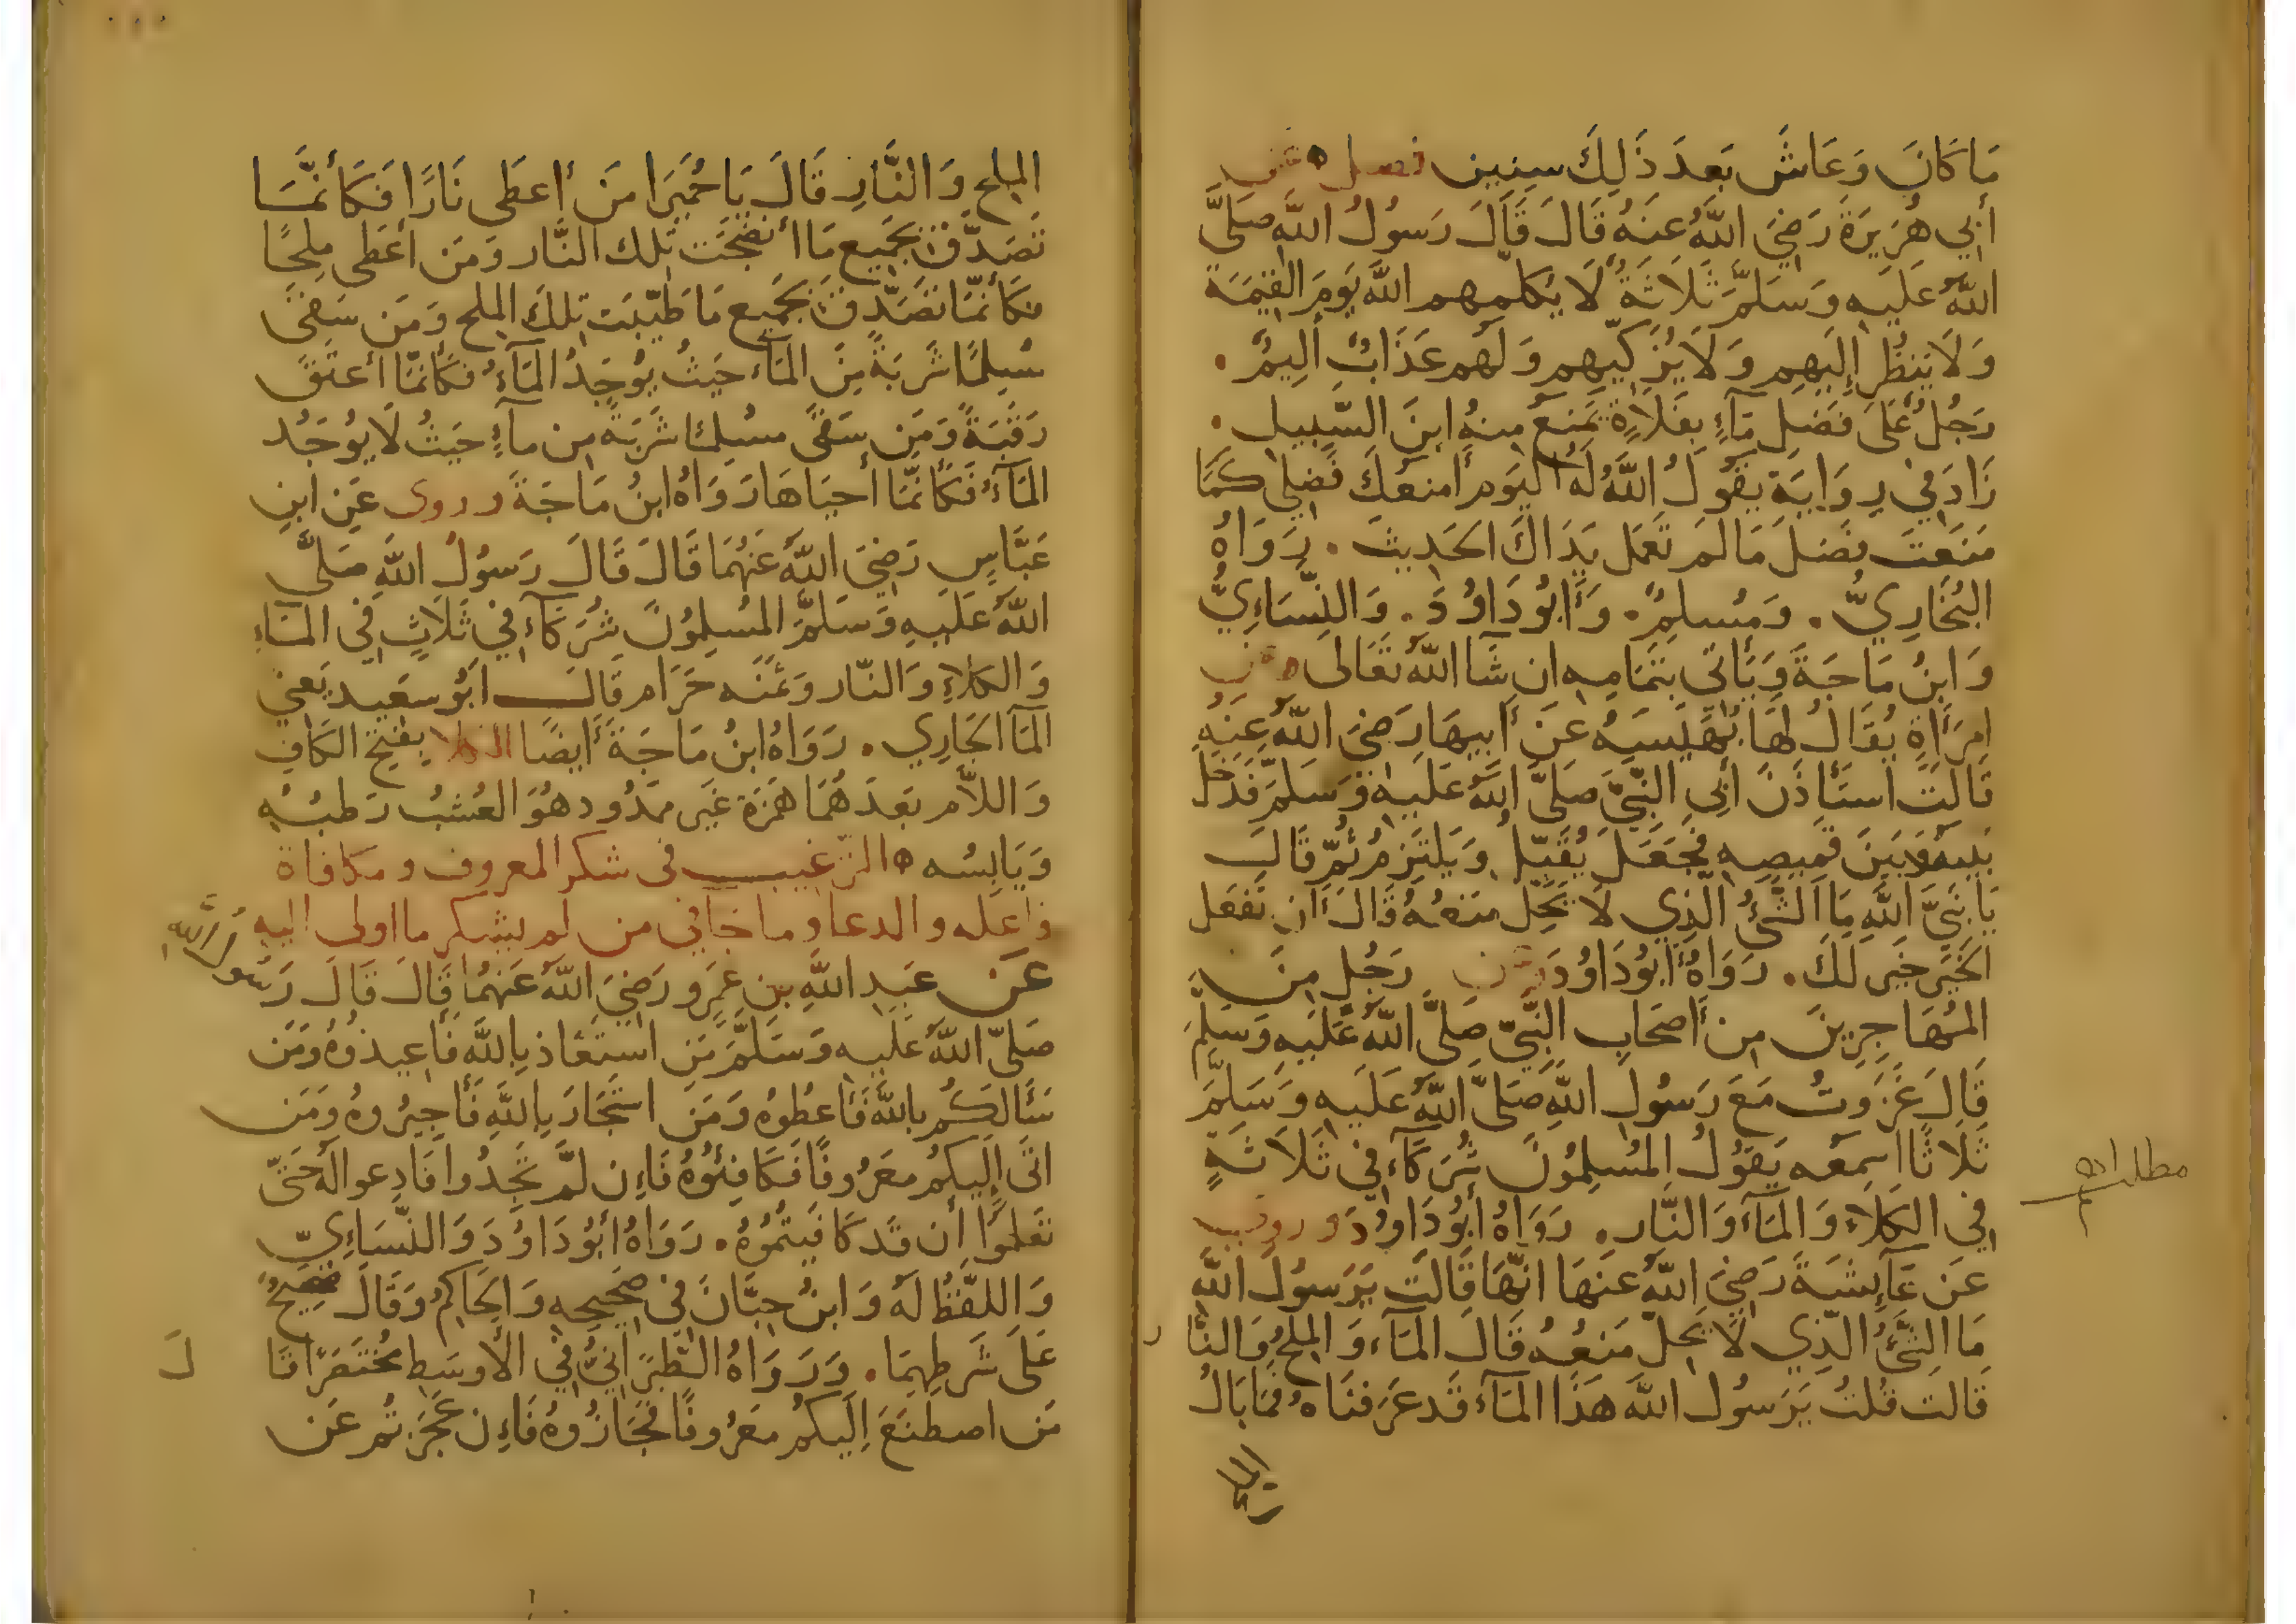 مَا كَانَ وَعَاشَ بَعدَ ذَلِكَ سِنِين فصل عن
أبِي هُرَيرَةَ رَضِيَ اللَّهُ عَنهُ قَالَ قَالَ رَسُولُ اللَّهِ صَلَّى
اللَّهُ عَلَيهِ وَسَلَّمَ ثَلَاثَةٌ لَا يُكَلِّمهم اللَّهُ يَومَ القِيٰمَةِ
وَلَا يَنظُرُ إِلَيهِم وَلَا يُزَكِّيهِم وَلَهُم عَذَابٌ أَلِيمٌ .
رَجُلٌ عَلَى فَضلِ مَآءٍ بِفَلَاةٍ يَمنَعُ مِنهُ ابنَ السَّبِيلِ .
زَادَ فِي رِوَايَةٍ يَقُولُ اللَّهُ لَهُ اليَومَ أمنَعُكَ فَضلِي كَمَا
مَنَعتَ فَضلَ مَا لَم تَعمَل يَدَاكَ الحَدِيثَ . رَوَاهُ
البُخَارِيُّ . وَمُسلِمٌ . وَأبُو دَاوُدَ . وَالنِّسَاءِيُّ
وَابنُ مَاجَةَ وَيَأتِي بِتَمَامِهِ إن شَا اللَّهُ تَعَالَى عن
امرَأةٍ يُقَالُ لَهَا بُهَيسَةُ عَن أبِيهَا رَضِيَ اللَّهُ عَنهُ
قَالَت استَأذَنَ أبِي النَّبِيَّ صَلَّى اللَّهُ عَلَيهِ وَسَلَّمَ فَدَخَلَ
بَينَهُ وَبَينَ قَمِيصِهِ فَجَعَلَ يُقَبِّلُ وَيَلتَزِمُ ثُمَّ قَالَ
يَا نَبِيَّ اللَّهِ مَا الشَّئُ الَّذِي لَا يَحِلُّ مَنعُهُ قَالَ أن تَفعَل
الخَيرَ خَيرٌ لَكَ . رَوَاهُ أبُو دَاوُدَ وعن رَجُلٍ مِنَ
المُهَاجِرِينَ مِن أَصحَابِ النَّبِيِّ صَلَّى اللَّهُ عَلَيهِ وَسَلَّمَ
قَالَ غَزَوتُ مَعَ رَسُولِ اللَّهِ صَلَّى اللَّهُ عَلَيهِ وَسَلَّمَ
ثَلَاثًا أسمَعُه يَقُولُ المُسلِمُونَ شُرَكَآءُ فِي ثَلَاثَةٍ
فِي الكَلَاءِ وَالمَآءِ وَالنَّارِ . رَوَاهُ أبُو دَاوُدَ وروي
عَن عَآئِشَةَ رَضِيَ اللَّهُ عَنهَا انَّهَا قَالَت يَرَسُولَ اللَّهِ
مَا الشَّئُ الَّذِي لَا يَحِلُّ مَنعُهُ قَالَ المَآءُ وَالمِلحُ وَالنَّا ر
قَالَت قُلتُ يَرَسُولَ اللَّهِ هَذَا المَآءُ قَد عَرَفنَاهُ فَمَا بَالُ
المِلحِ وَالنَّارِ قَالَ يَا حُمَيرَا مَن أعطَى نَارًا فَكَأَنَّمَا
تَصَدَّقَ بِجَمِيعِ مَا أنضَجَت تِلكَ النَّار وَمَن أعطَى مِلحًا
فَكَأَنَّمَا تَصَدَّقَ بِجَمِيعِ مَا طَيَّبَت تِلكَ المِلحِ وَمَن سَقَى
مُسلِمًا شَربَةً مِنَ المَآءِ حَيثُ يُوجَدُ المَآءُ فَكَأَنَّمَا أعتَقَ
رَقَبَةً وَمَن سَقَى مُسلِمًا شَربَةً مِن مآءٍ حَيثُ لَا يُوجَدُ
المَآءُ فَكَأَنَّمَا أحيَاهَا رَوَاهُ ابنُ مَاجَةَ وروى عَنِ ابنِ
عَبَّاسٍ رَضِيَ اللَّهُ عَنهُمَا قَالَ قَالَ رَسُولُ اللَّهِ صَلَّى
اللَّهُ عَلَيهِ وَسَلَّمَ المُسلِمُونَ شُرَكَآءُ فِي ثَلَاثٍ فِي المَآءِ
وَالكَلَاءِ وَالنَّار وَثَمَنُه حَرَام قَالَ ابُو سَعِيد يَعنِي
المَآ الجَارِي . رَوَاهُ ابنُ مَاجَةَ أَيضًا الكلا بِفَتحِ الكَافِ
وَاللَّامِ بَعدَهُمَا هَمزَة غَير مَمدُود هُوَ العُشبُ رَطبُهُ
وَيَابِسُه الترغيب في شكر المعروف ومكافاة
فاعله والدعا وما جافي من لم يشكر ما اولى اليه
عَن عَبدِ اللَّهِ بنِ عَمرٍو رَضِيَ اللَّهُ عَنهُمَا قَالَ قَالَ رَسُولُ اللَّهِ
صَلَّى اللَّهُ عَلَيهِ وَسَلَّمَ مَنِ استَعَاذ بِاللَّهِ فَأعِيذوُهُ وَمَن
سَأَلَكُم بِاللَّهِ فَأَعطُوهُ وَمَنِ استَجَارَ بِاللَّهِ فَأجِيرُوهُ وَمَن
اتَى إِلَيكُم مَعرُوفًا فَكَافِئُوهُ فَإِن لَّم تَجِدُوا فَادعُوا لَهُ حَتَّى
تَعلَمُوا أن قَد كَافَيتُمُوهُ . رَوَاهُ أبُو دَاوُدَ وَالنَّسَاءِيّ
وَاللَّفظُ لَهُ وَابنُ حِبَّانَ فِي صَحِيحِهِ وَالحَاكِمُ وَقَالَ صَحِيحٌ
عَلَى شَرطِهِمَا . وَرَوَاهُ الطَّبَرَانِيُّ فِي الأوسَطِ مُختَصَرًا قَا لَ
مَن اصطَنَعَ إِلَيكُم مَعرُوفًا فَجَازُوهُ فَإِن عَجَزتُم عَن